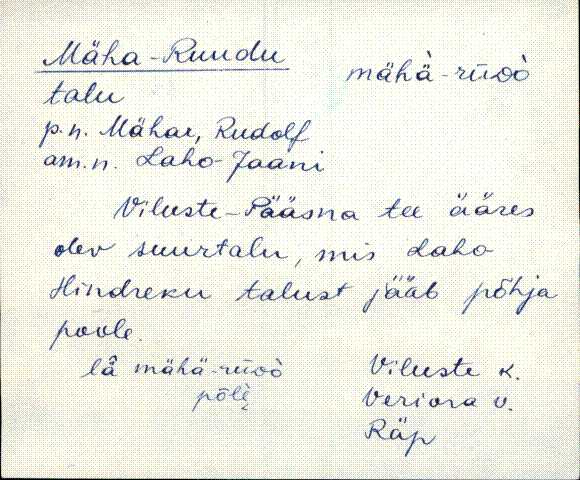 Mäha-Ruudu mähà-rūòò
talu
p.n. Mähar, Rudolf
am.n. Laho-Jaani
Viluste-Pääsna tee ääres
olev suurtalu, mis Laho
Hindreku talust jääb põhja
poole.
lâ mähä-rūòò Viluste k.
põlè Veriora v.
Räp